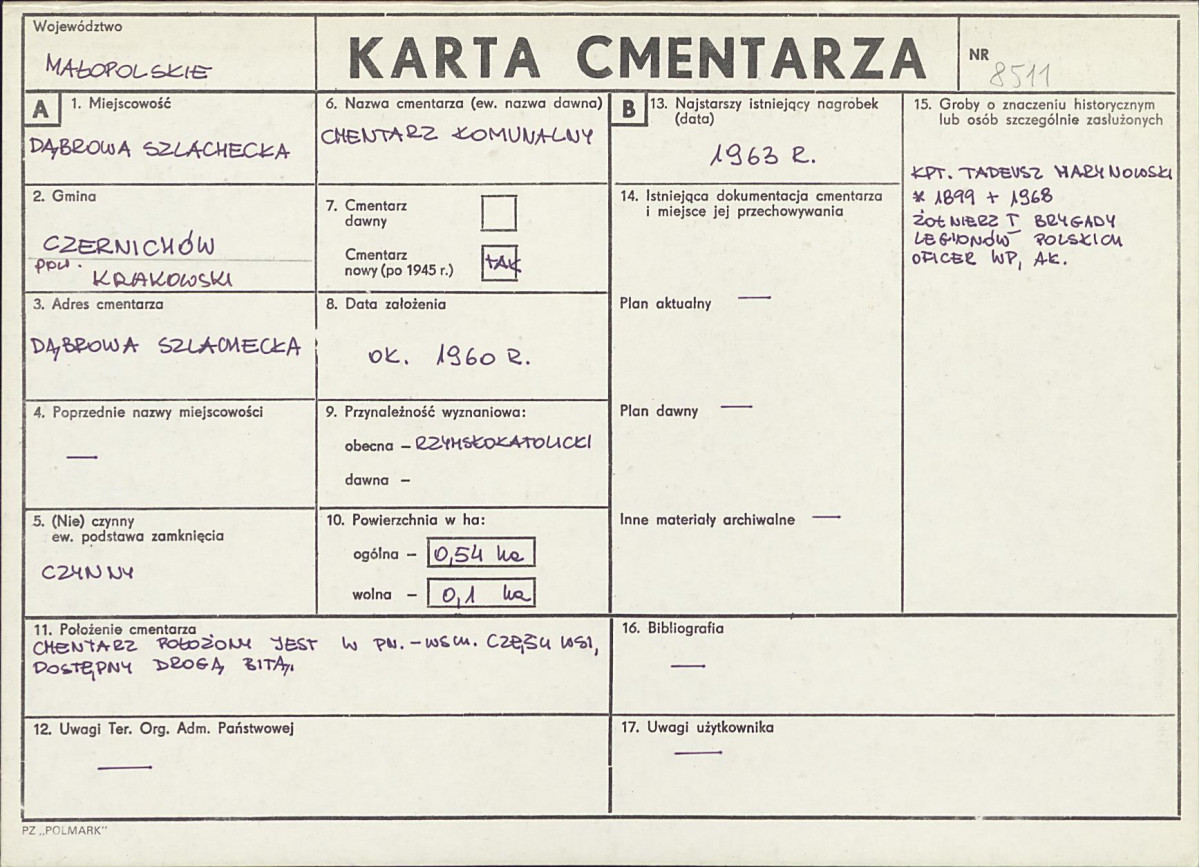 Województwo
MAŁOPOLSKIE
KARTA CMENTARZA
NR
8511
A
1. Miejscowość
DĄBROWA SZLACHECKA
2. Gmina
CZERNICHÓW
pow. KRAKOWSKI
3. Adres cmentarza
DĄBROWA SZLACHECKA
4. Poprzednie nazwy miejscowości
—
5. (Nie) czynny
ew. podstawa zamknięcia
CZYNNY
6. Nazwa cmentarza (ew. nazwa dawna)
CMENTARZ KOMUNALNY
7. Cmentarz
dawny
Cmentarz
nowy (po 1945 r.) TAK
8. Data założenia
OK. 1960 R.
9. Przynależność wyznaniowa:
obecna – RZYMSKOKATOLICKI
dawna –
10. Powierzchnia w ha:
ogólna – 0,54 ha
wolna – 0,1 ha
11. Położenie cmentarza
CMENTARZ POŁOŻONY JEST W PN.-WSCH. CZĘŚCI WSI,
DOSTĘPNY DROGĄ BITĄ.
12. Uwagi Ter. Org. Adm. Państwowej
—
B
13. Najstarszy istniejący nagrobek
(data)
1963 R.
14. Istniejąca dokumentacja cmentarza
i miejsce jej przechowywania
Plan aktualny —
Plan dawny —
Inne materiały archiwalne —
15. Groby o znaczeniu historycznym
lub osób szczególnie zasłużonych
KPT. TADEUSZ MARYNOWSKI
* 1899 + 1968
ŻOŁNIERZ I BRYGADY
LEGIONÓW POLSKICH
OFICER WP, AK.
16. Bibliografia
—
17. Uwagi użytkownika
—
PZ „POLMARK"